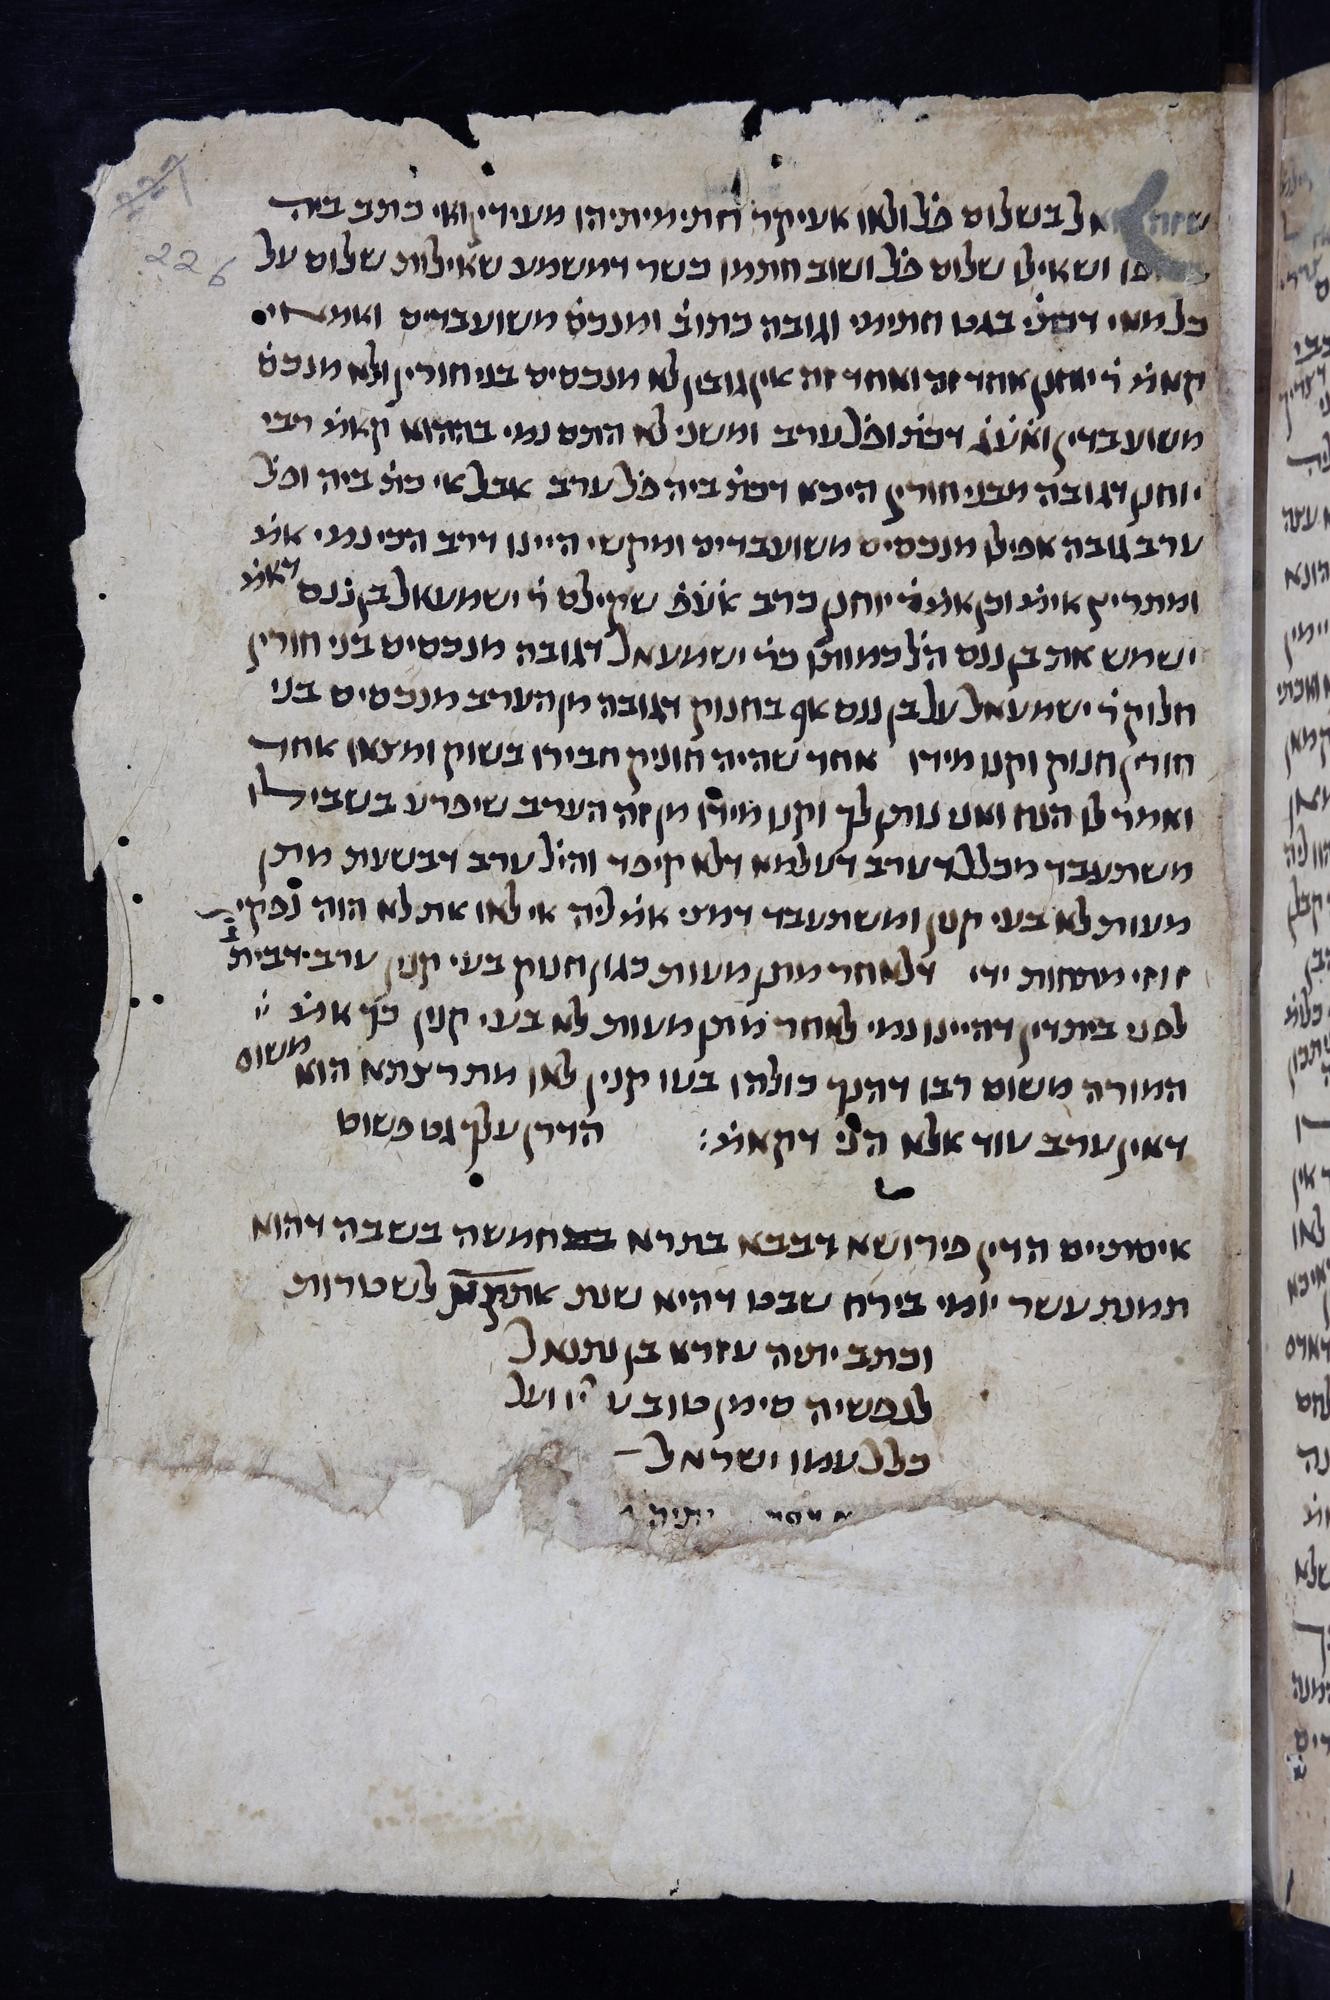 226
בשלום פול ולאו אעיקר חתימיתיהו מעידין ואי כתב ביה
ושאילו שלום פול ושוב חתמו כשר דמשמע שאילות שלום על
כל מאי דכתי בגט חתימי וגובה כתוב ומנכס משועבדים ואמאי
קאמ ר יוחנן אחד זה ואחד זה אין גובין לא מנכסים בני חורין ולא מנכס
משועבדין ואעג דכת ופל ערב ומשני לא התם נמי בההוא קאמ רבי
יוחנן דגובה מבני חורין היכא דכת ביה פל ערב אבל אי כת ביה ופל
ערב גובה אפילו מנכסים משועבדים ומקשי היינו דרב הכי נמי אמ
ומתריץ אימ וכן אמ ר יוחנן כרב אעפ שקילס ר ישמעאל בן ננס דאמ
ישמש את בן ננס הל כמותו כר ישמעאל דגובה מנכסים בני חורין
חלוק ר ישמעאל על בן ננס אף בחנוק דגובה מן הערב מנכסים בני
חורין חנוק וקנו מידו אחד שהיה חונק חבירו בשוק ומצאו אחד
ואמר לו הנח ואני נותן לך וקנו מידו מן זה הערב שיפרע בשבילו
משתעבד מכלל דערב דעלמא דלא קיפד והיל ערב דבשעת מתן
מעות לא בעי קנין ומשתעבד דמצי אמ ליה אי לאו את לא הוה נפקי
זוזי מתחות ידי דלאחר מתן מעות כגון חנוק בעי קנין ערב דבית
לפני בית דין דהיינו נמי לאחר מתן מעות לא בעי קנין כך אמ
המורה משום רבו דהנך כולהו בטו קנין לאו מתרצתא הוא משום
דאין ערב עוד אלא הני דקאמ: הדרן עלך גט פשוט
איסתיים הדין פירושא דבבא בתרא חמשה בשבה דהוא
תמנת עשר יומי בירח שבט דהיא שנת לשטרות
וכתב יתיה עזרא בן נתנאל
לנפשיה סימן טוב ע יו ועל
כלל עמו ישראל
יתיה